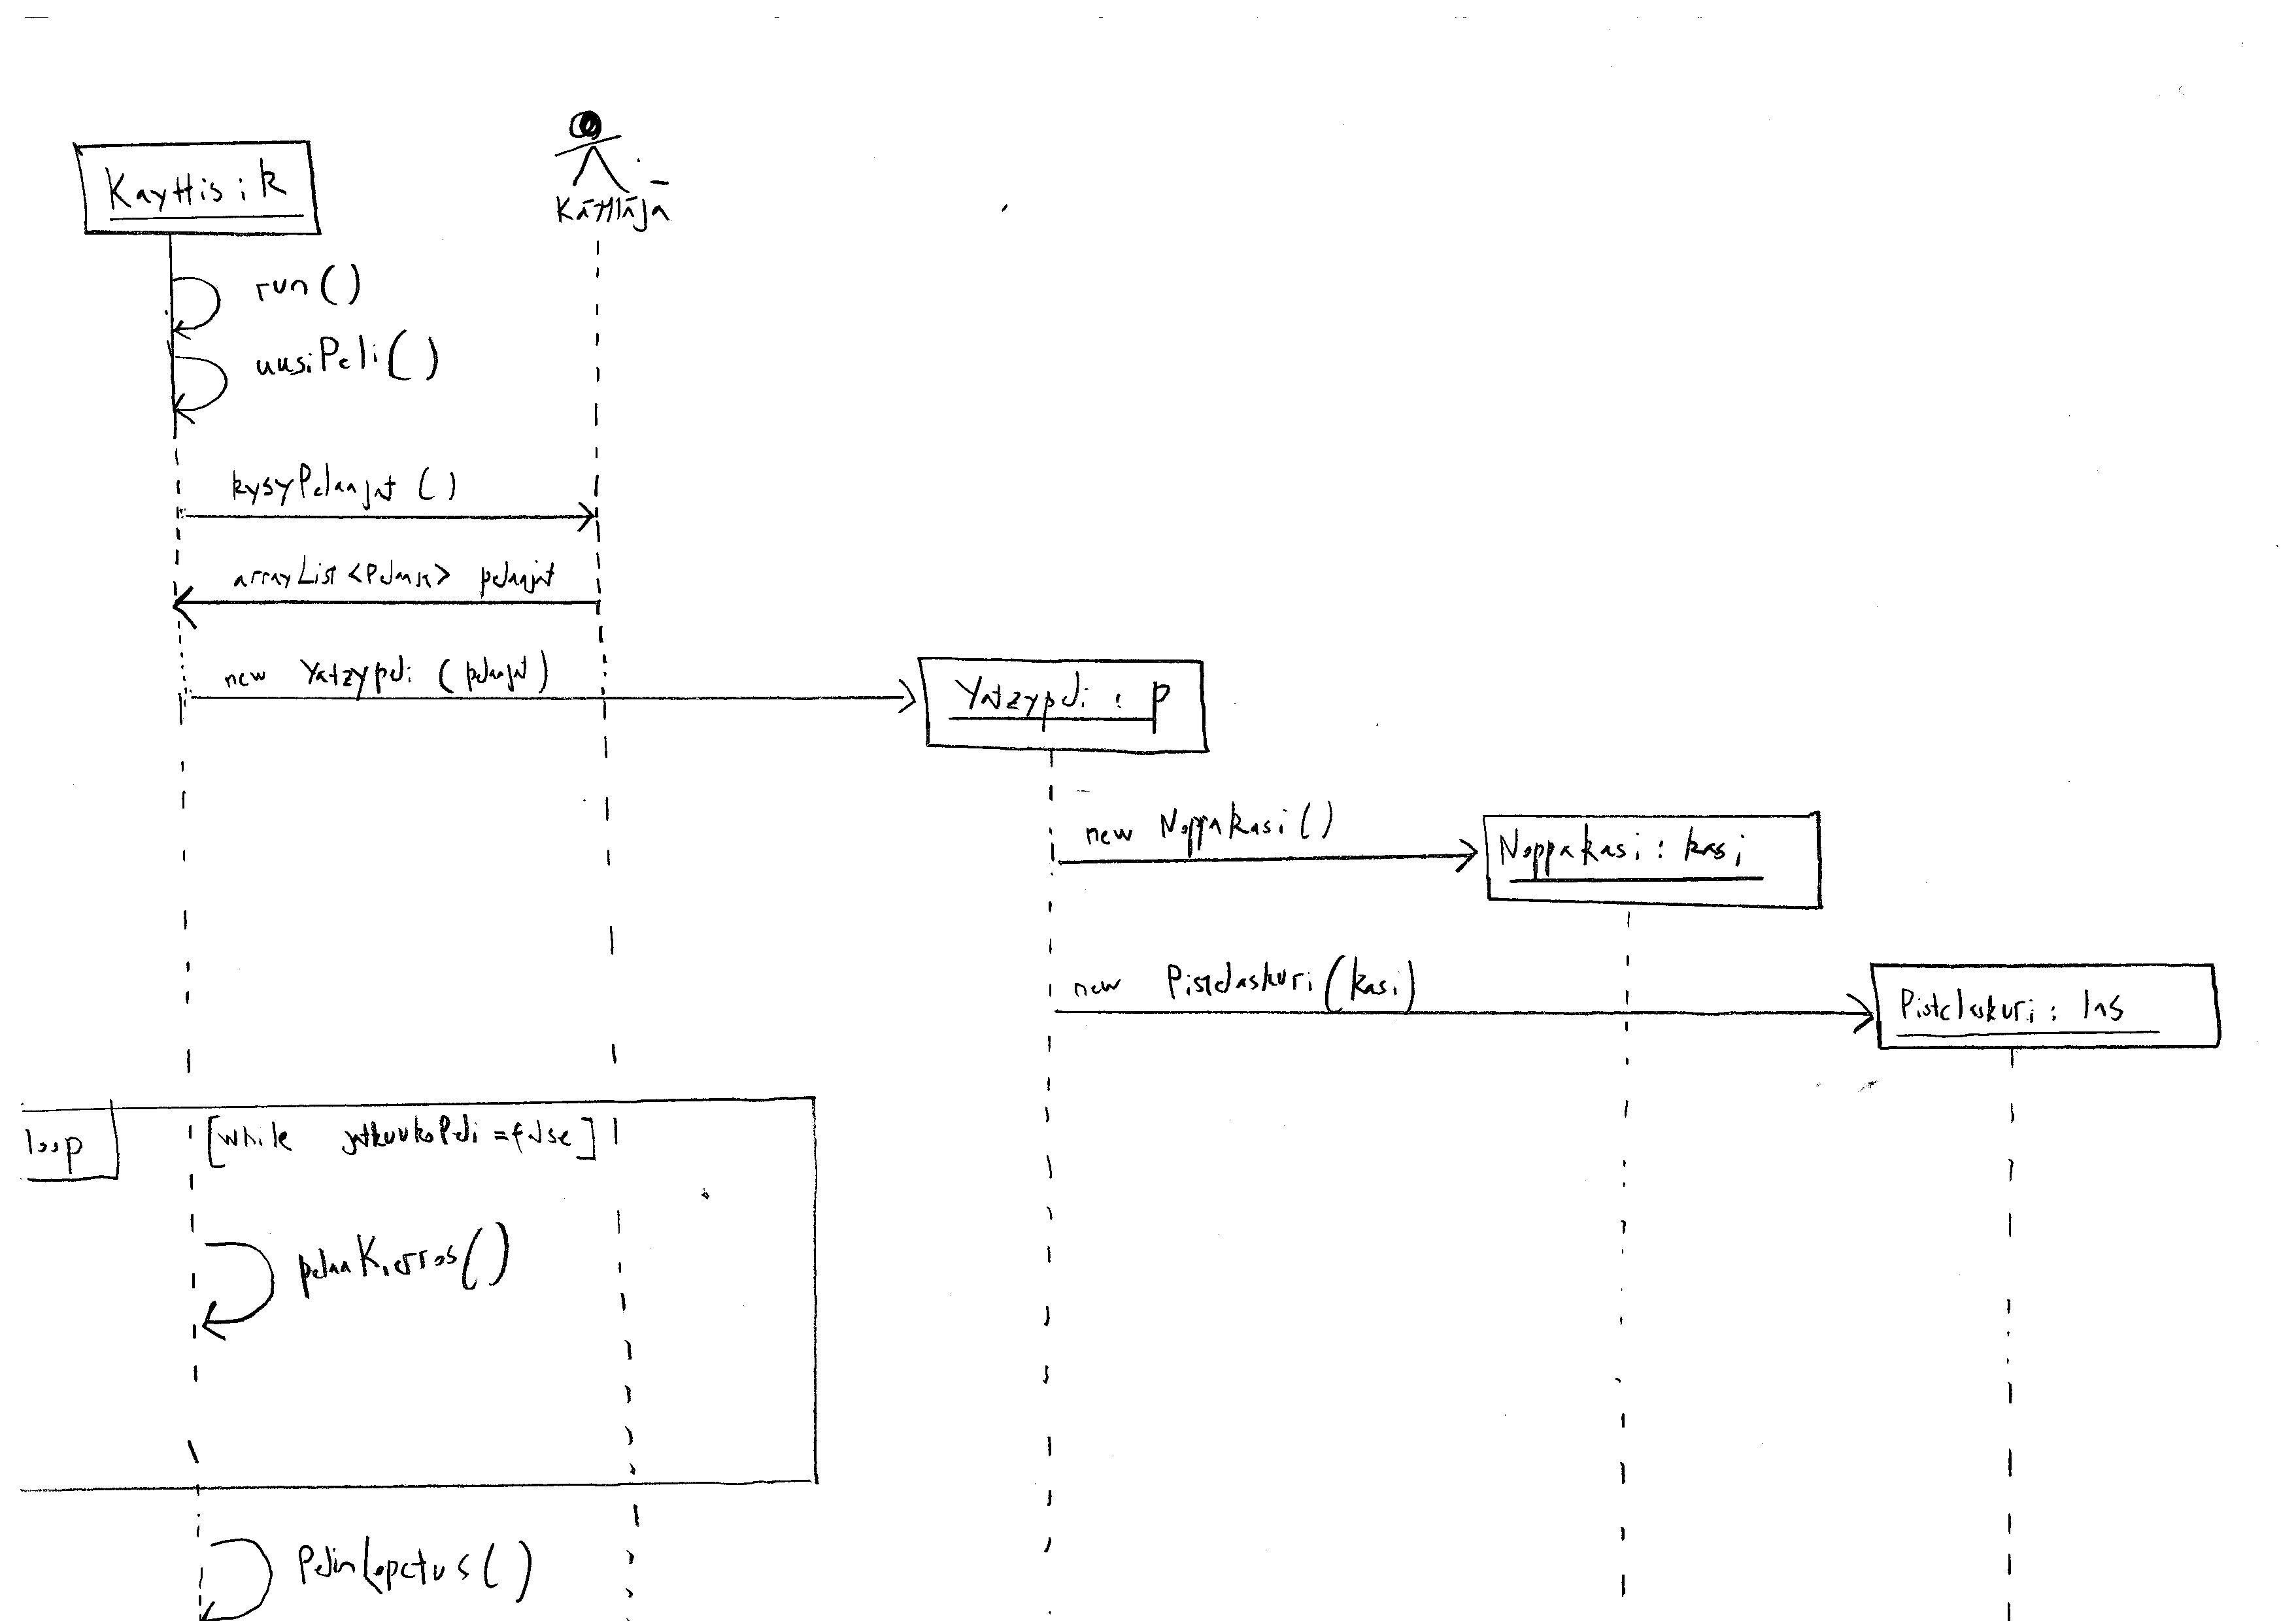 Kayttis : k
Käyttäjä
run()
uusiPeli()
kysyPelaajat ()
arrayList <Pelaaja> pelaajat
new Yatzypeli (pelaajat)
Yatzypeli : p
new Noppakasi()
Noppakasi : kasi
new Pistelaskuri (kasi)
Pistelaskuri : las
loop
[while jatkuukoPeli = false]
pelaaKierros()
PelinLopetus()